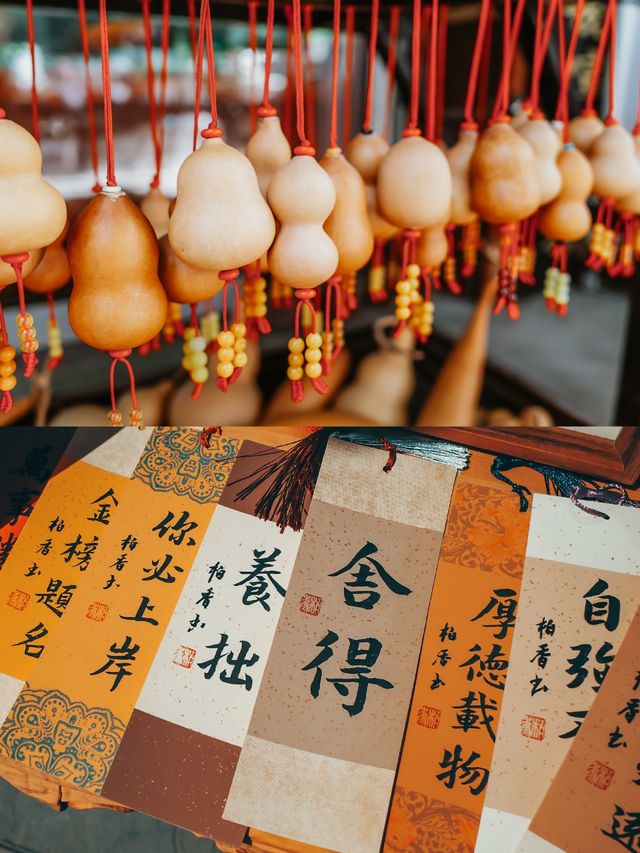 萬事
金榜題名
柏香书
你必上岸
柏香书
養拙
柏香书
舍得
厚德載物
柏香书
自强不
柏香书
香书